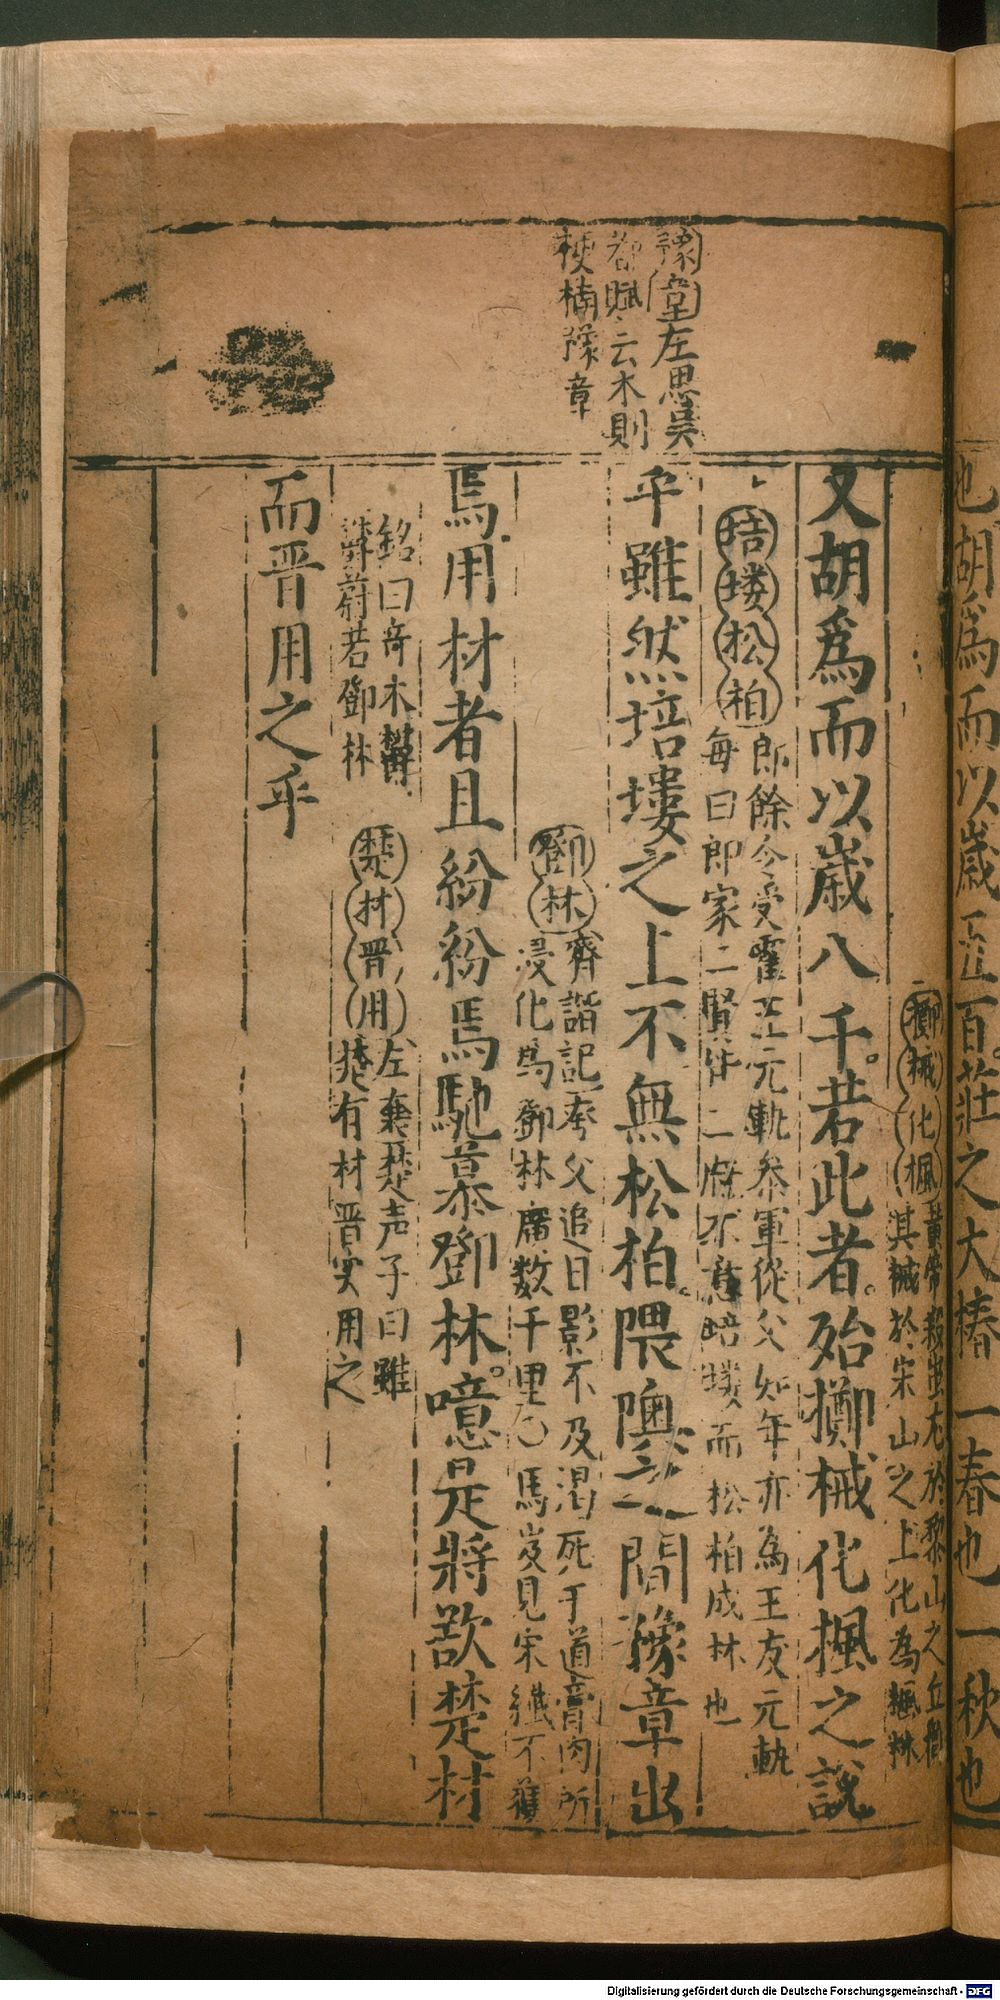 也胡爲而以歲五百莊之大椿一春也一秋也
擲械化楓黃帝殺蚩尤於黎山之丘擲
其械於宋山之上化為楓林
又胡爲而以歲八千若此者殆擲械化楓之說
豫章左思吳
都賦云木則
梗楠豫章
培塿松柏郎餘令受霍王元軌參軍從父知年亦為王友元軌
每曰郎家二賢皆二府不意培塿而松柏成林也
乎雖然培塿之上不無松柏隈隩之間豫章出
鄧林齊諧記夸父追日影不及渴死于道膏肉所
浸化為鄧林廣数千里
馬用材者且紛紛焉馳慕鄧林噫是將歎楚材
銘曰奇木欝
蔚若鄧林
楚材晋用左襄楚声子曰雖
楚有材晋实用之
而晋用之乎
Digitalisierung gefördert durch die Deutsche Forschungsgemeinschaft - DFG